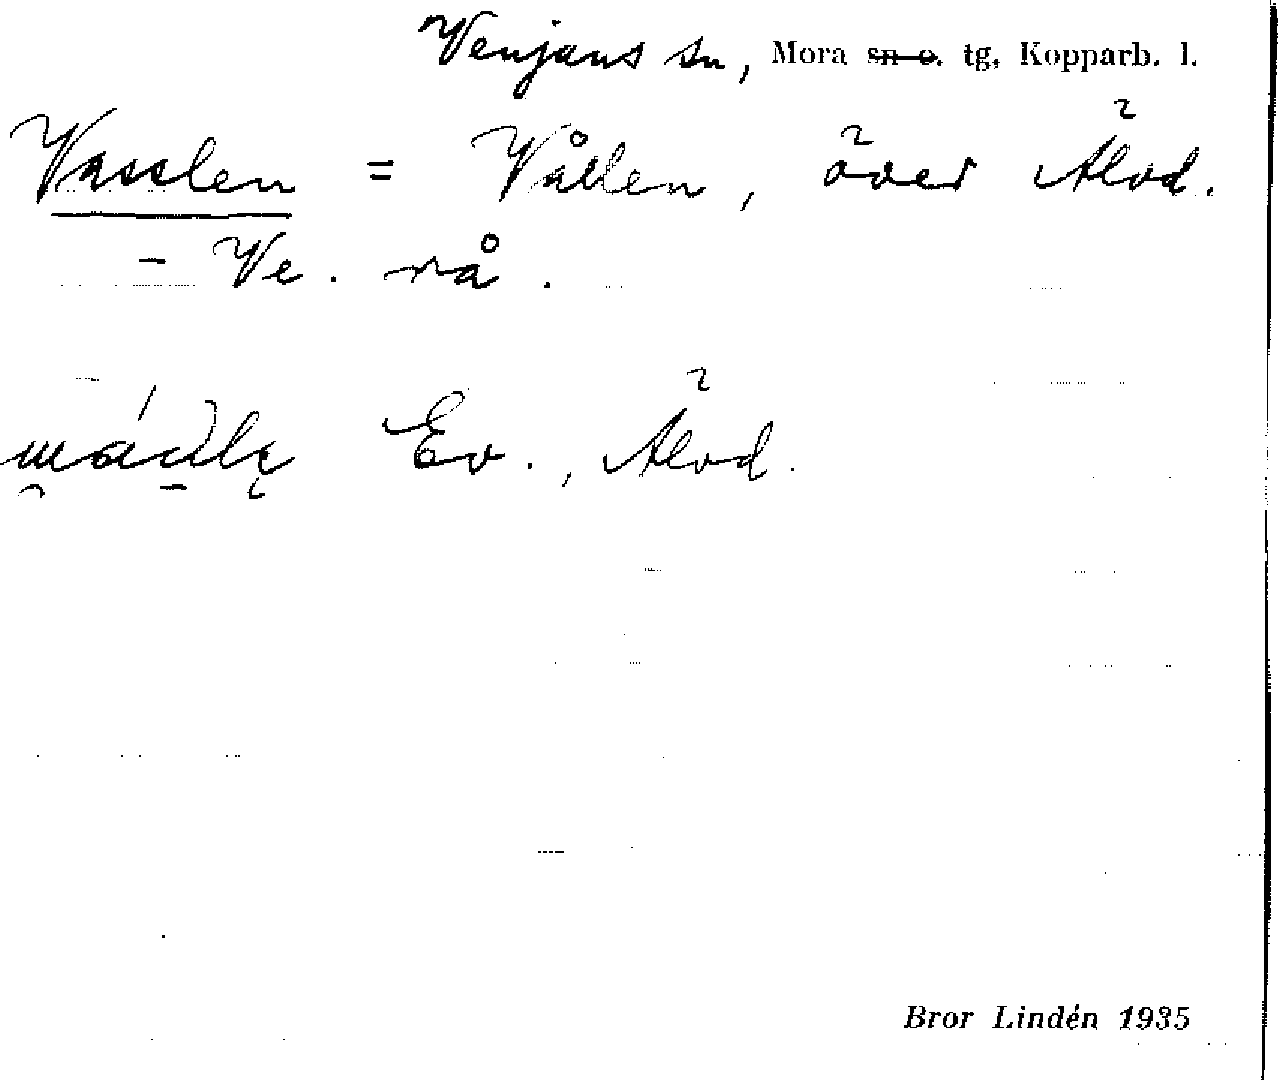 Venjans sn, Mora sn o. tg, Kopparb. l.
Vasslen = Vållen, över Älvd.
- Ve. rå.
Ev., Älvd.
Bror Lindén 1935